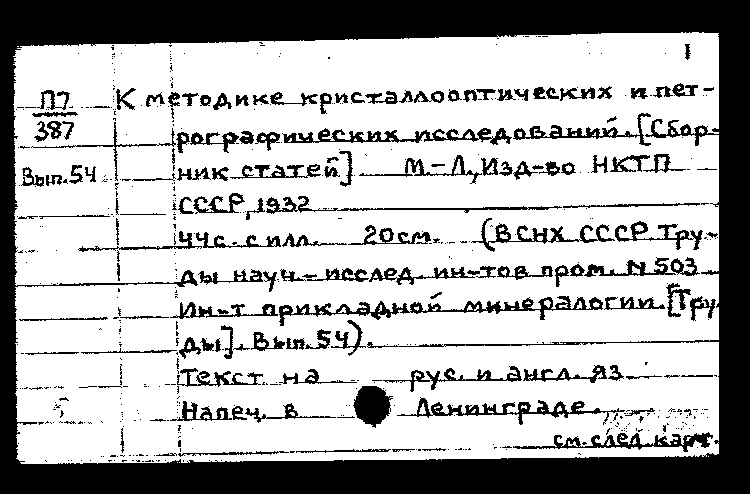 1
П7
387
Вып.54
К методике кристаллооптических и пет-
рографических исследований. [Сбор-
ник статей] М.-Л., Изд-во НКТП
СССР, 1932
44 с. с илл. 20 см. (ВСНХ СССР Тру-
ды науч.-исслед. ин-тов пром. N 503
Ин-т прикладной минералогии. [Тру
ды]. Вып. 54).
Текст на рус. и англ. яз.
Напеч. в Ленинграде.
см. след. карт.